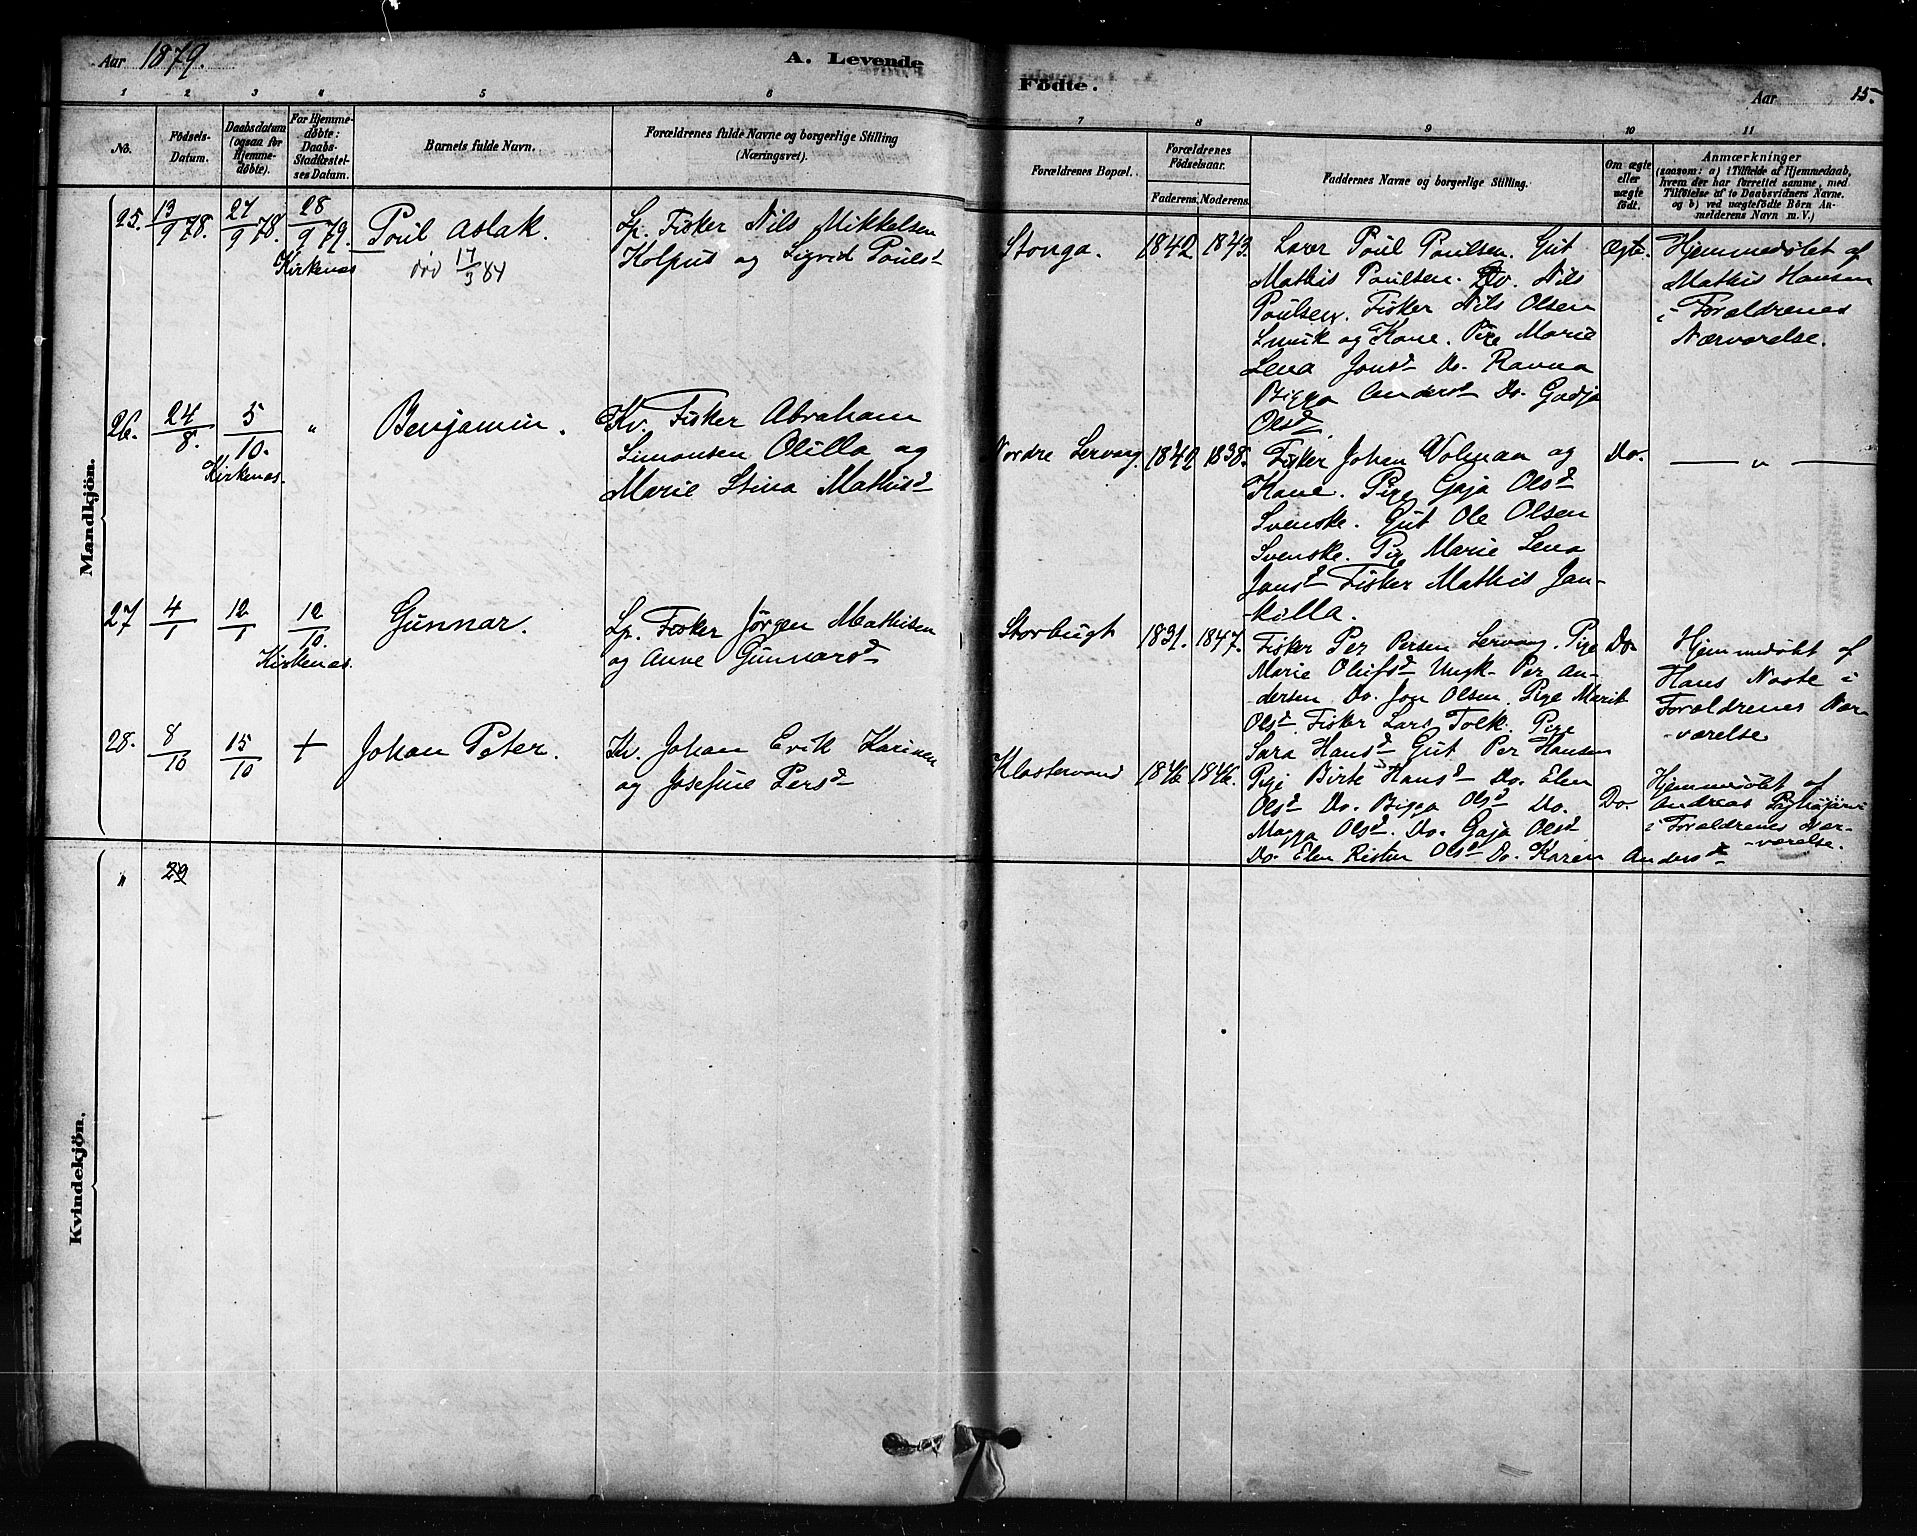 Aar 1879.
A. Levende
Födte.
Aar
15.
1 2 3 4 5 6
7 8 9 10 11
No.
Födsels-
Datum.
Daabsdatum
(ogsaa for
Hjemme-
döbte).
For Hjemme-
döbte:
Daabs-
Stadfæstel-
ses Datum.
Barnets fulde Navn.
Forældrenes fulde Navne og borgerlige Stilling
(Næringsvei).
Forældrenes Bopæl.
Forældrenes
Födselsaar.
Faderens. Moderens.
Faddernes Navne og borgerlige Stilling.
Om ægte
eller
uægte
födt.
Anmærkninger
(saasom: a) i Tilfælde af Hjemmedaab,
hvem der har forrettet samme, med
Tilföielse af to Daabsvidners Navne.
og b) ved uægtefödte Börn An-
melderens Navn m. V.)
Mandkjön.
25.
13/9 78.
27/9 78.
28/9 79.
Kirkenæs
Poul Aslak.
död 17/3 84
Lp. Fisker Nils Mikkelsen
Kolpus og Sigrid Pouls d
Stonga.
1842 1843.
Lærer Poul Poulsen. Gut
Mathis Poulsen. Do. Nils
Poulsen. Fisker Nils Olsen
Smuk og Kone. Pige Marie
Lena Jons d Do. Ravna
Bigga Anders d Do. Gadja
Ols d.
Ægte.
Hjemmedøbt af
Mathis Hansen
i Forældrenes
Nærværelse.
26.
24/8.
5/10.
Kirkenæs.
"
Benjamin.
Kv. Fisker Abraham
Simonsen Olilla og
Marie Stina Mathis d
Nordre Lervaag
1842 1838.
Fisker Johan Wolman og
Kone. Pige Gaja Ols d
Svenske. Gut Ole Olsen
Svenske. Pige Marie Lena
Jons d Fisker Mathis Jan-
-killa.
Do.
— " —
27
4/1
12/1
12/10.
Kirkenæs.
Gunnar.
Lp. Fisker Jørgen Mathisen
og Anne Gunnars d
Storbugt
1831. 1847.
Fisker Per Persen Lervaag. Pige
Marie Olufs d Ungk. Per An-
dersen Do. Jon Olsen. Pige Marit
Ols d. Fisker Lars Tolk. Pige
Sara Hans d Gut Per Hansen
Do.
Hjemmedøbt af
Hans Noste i
Forældrenes Nær-
-værelse
28.
8/10
15/10
+
Johan Peter.
Kv. Johan Erik Karinen
og Josefine Pers d
Klostervand
1846 1846.
Pige Birte Hans d Do. Elen
Ols d Do. Bigga Ols d Do.
Magga Ols d. Do. Gaja Ols d
Do. Elen Risten Ols d Do. Karen Anders d
Do.
Hjemmedøbt af
Andreas
i Forældrenes Nær-
-værelse.
Kvindekjön.
" 29